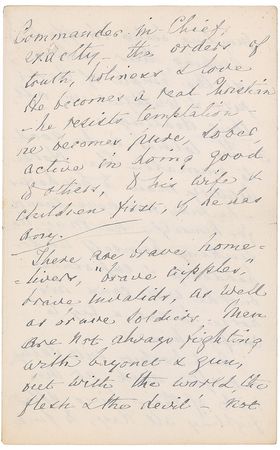 Commander-in-Chief,
exactly - the orders of
truth, holiness & love
He becomes a real Christian
- he resists temptation -
he becomes pure, sober,
active in doing good
to others, to his wife &
children first, if he has
any.
There are brave home-
-livers, "brave cripples,"
brave invalids, as well
as brave soldiers. Men
are not always fighting
with bayonet & gun,
but with 'the world, the
flesh & the devil' - not